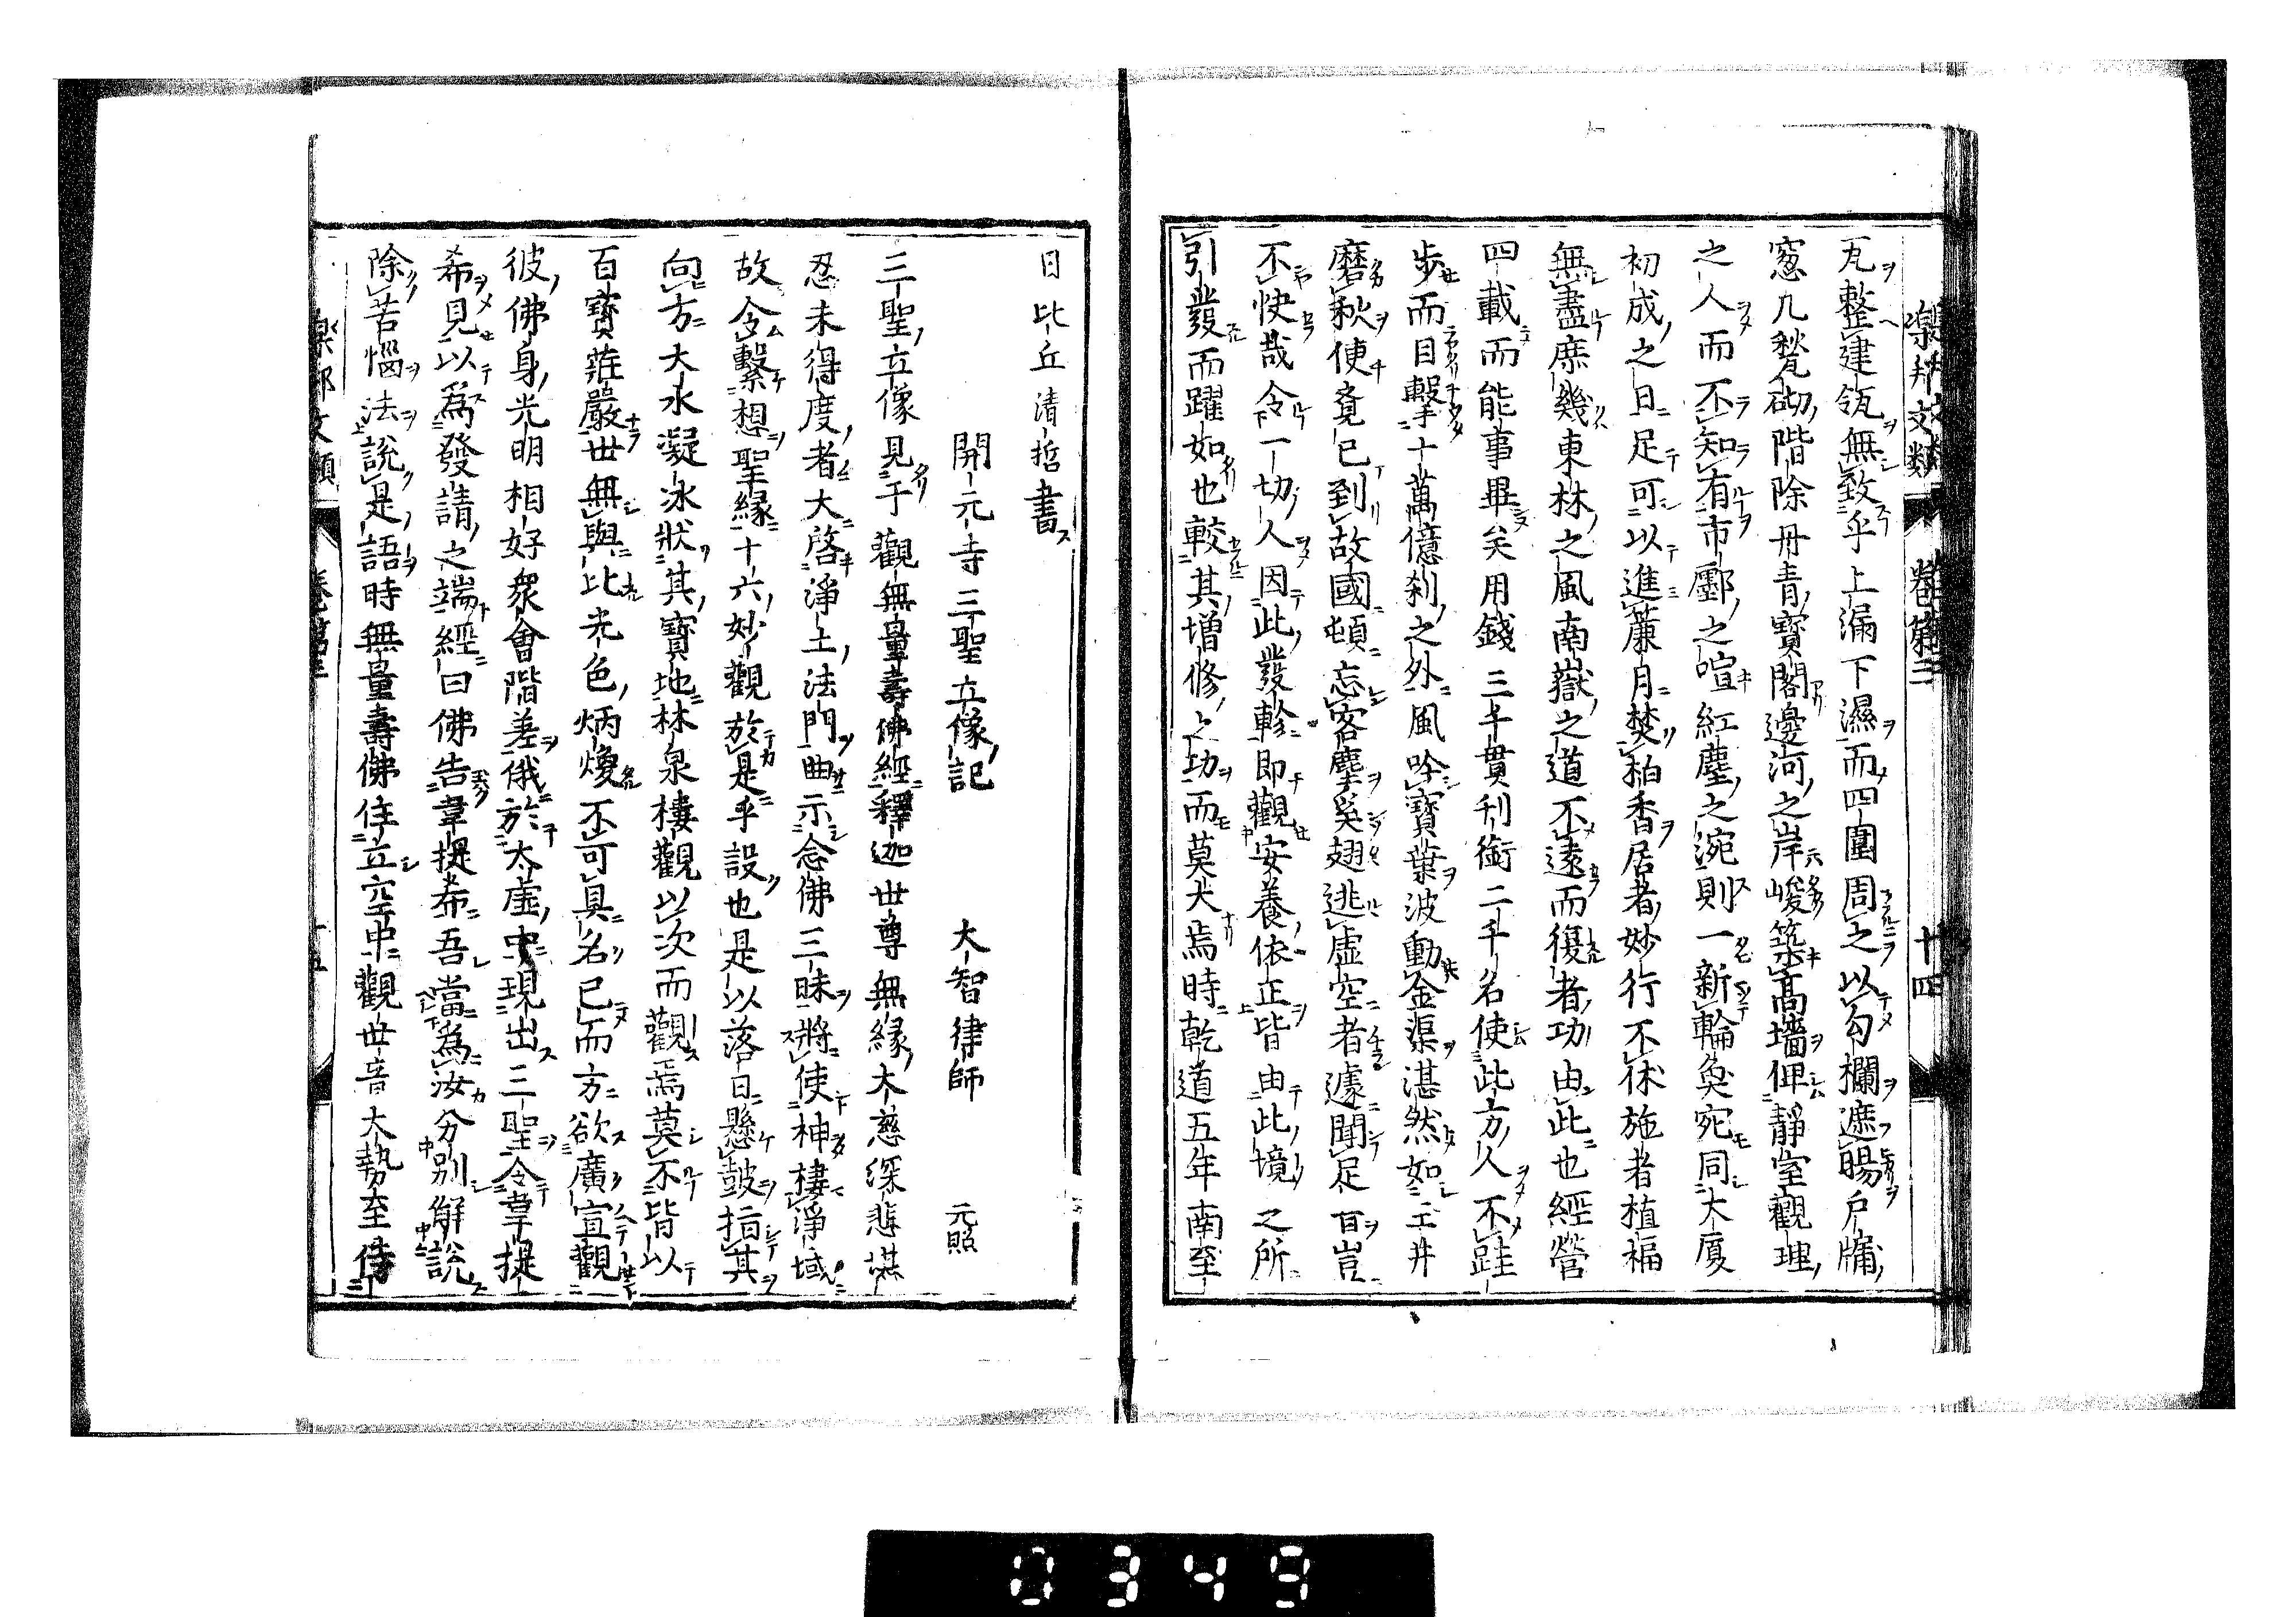 樂邦文類 卷第三 十四
瓦整建瓴無致乎上漏下濕而四圍周之以勾欄遮暘戶牖
窓几甃砌階除丹青寶閣邊河之岸峻築高墻俾靜室觀理
之人而不知有市鄽之喧紅塵之涴則一新輪奐宛同大厦
初成之日足可以進簾月焚栢香居者妙行不休施者植福
無盡庶幾東林之風南嶽之道不遠而復者功由此也經營
四載而能事畢矣用錢三千貫刋銜二千名使此方人不跬
步而目擊十萬億刹之外風吟寶葉波動金渠湛然如玉井
磨秋使竟已到故國頓忘客塵奚翅逃虛空者遽聞足音豈
不快哉令一切人因此發軫即觀安養依正皆由此境之所
引發而躍如也較其增修之功而莫大焉時乾道五年南至
日比丘清哲書
開元寺三聖立像記 大智律師 元照
三聖立像見于觀無量壽佛經釋迦世尊無緣大慈深悲堪
忍未得度者大啓淨土法門曲示念佛三昧將使神棲淨域
故令繫想聖緣十六妙觀於是乎設也是以落日懸鼓指其
向方大水凝冰狀其寶地林泉棲觀以次而觀焉莫不皆以
百寶莊嚴世無與比光色炳煥不可具名已而方欲廣宣觀
彼佛身光明相好衆會階差俄於太虛中現出三聖令韋提
希見以爲發請之端經曰佛告韋提希吾當爲汝分別解說
除苦惱法說是語時無量壽佛住立空中觀世音大勢至侍
樂邦文類 卷第三 十五
0349